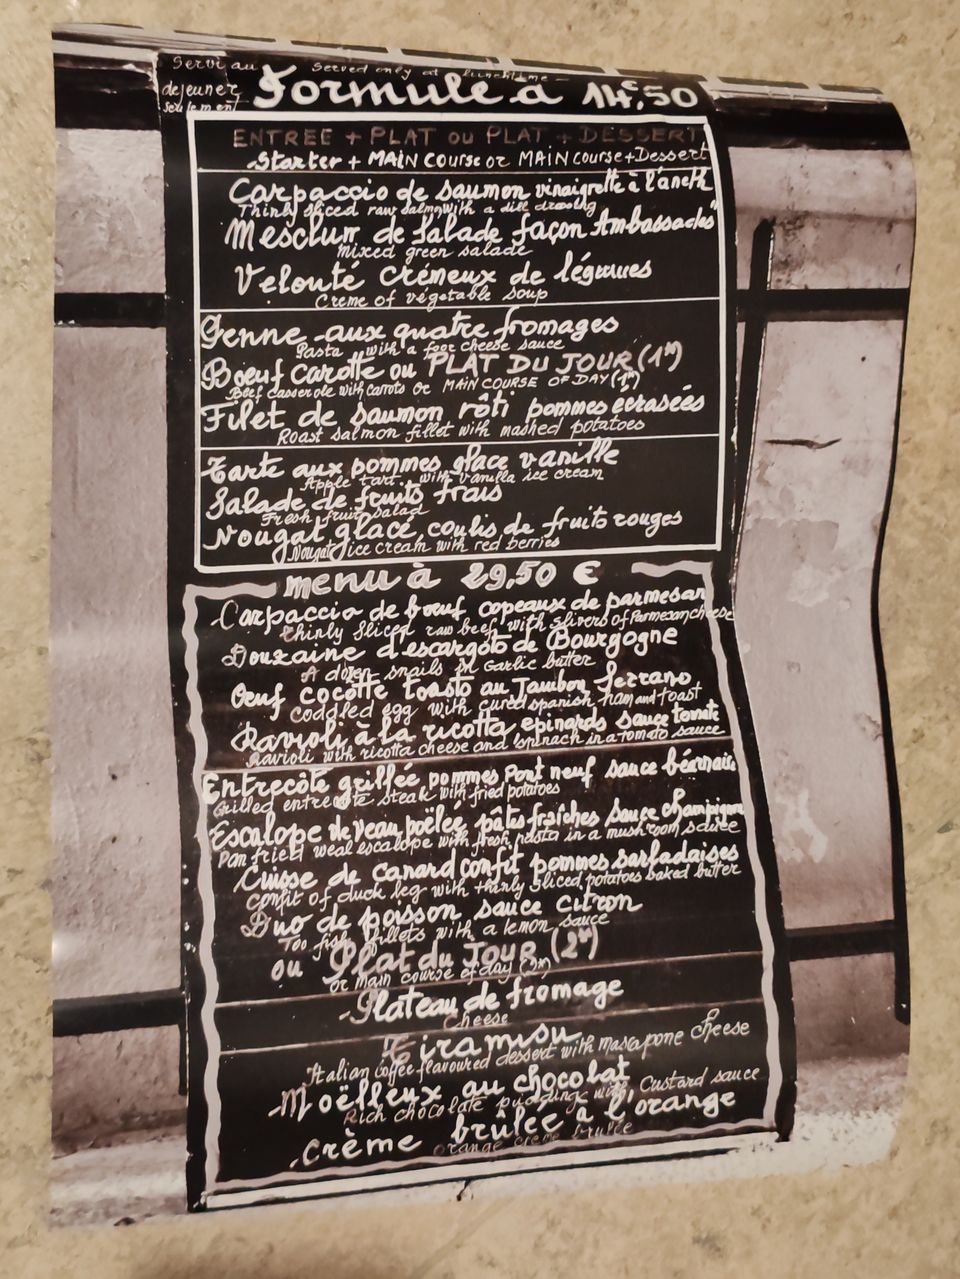 Servi au
dejeuner
seulement
Served only at lunchtime
Formule à 14€,50
ENTREE + PLAT OU PLAT + DESSERT
Starter + MAIN course or MAIN course + Dessert
Carpaccio de saumon vinaigrette à l'aneth
Thinly sliced raw salmon with a dill dressing
Mesclun de salade façon "Ambassades"
mixed green salade
Velouté crémeux de légumes
Creme of végetable soup
Penne aux quatre fromages
Pasta with a foor cheese sauce
Boeuf carotte ou PLAT DU JOUR (1er)
Beef casserole with carrots or MAIN COURSE OF DAY (1er)
Filet de saumon rôti pommes écrasées
Roast salmon fillet with mashed potatoes
Tarte aux pommes glace vanille
Apple tart with vanilla ice cream
Salade de fruits frais
Fresh fruit salad
Nougat glacé, coulis de fruits rouges
Nougat ice cream with red berries
menu à 29,50 €
Carpaccio de boeuf copeaux de parmesan
thinly sliced raw beef with slivers of Parmezan cheese
Douzaine d'escargots de Bourgogne
A dozen snails in Garlic butter
Oeuf cocotte toasts au Jambon Serrano
coddled egg with cured spanish ham and toast
Ravioli à la ricotta, epinards sauce tomate
Ravioli with ricotta cheese and spinach in a tomato sauce
Entrecôte grillée pommes Pont neuf sauce béarnaise
Grilled entrecote steak with fried potatoes
Escalope de veau poëlée, pâtes fraîches sauce champignons
Pan fried weal escalope with fresh pasta in a mushroom sauce
Cuisse de canard confit pommes sarladaises
Confit of duck leg with thinly sliced potatoes baked butter
Duo de poisson sauce citron
Too fish fillets with a lemon sauce
ou Plat du JOUR (2)
or main course of day (2)
Plateau de fromage
Cheese
Tiramisu
Italian coffee flavoured dessert with mascapone cheese
Moëlleux au chocolat
Rich chocolate pudding with Custard sauce
Crème brûlée à l'orange
orange creme brulée